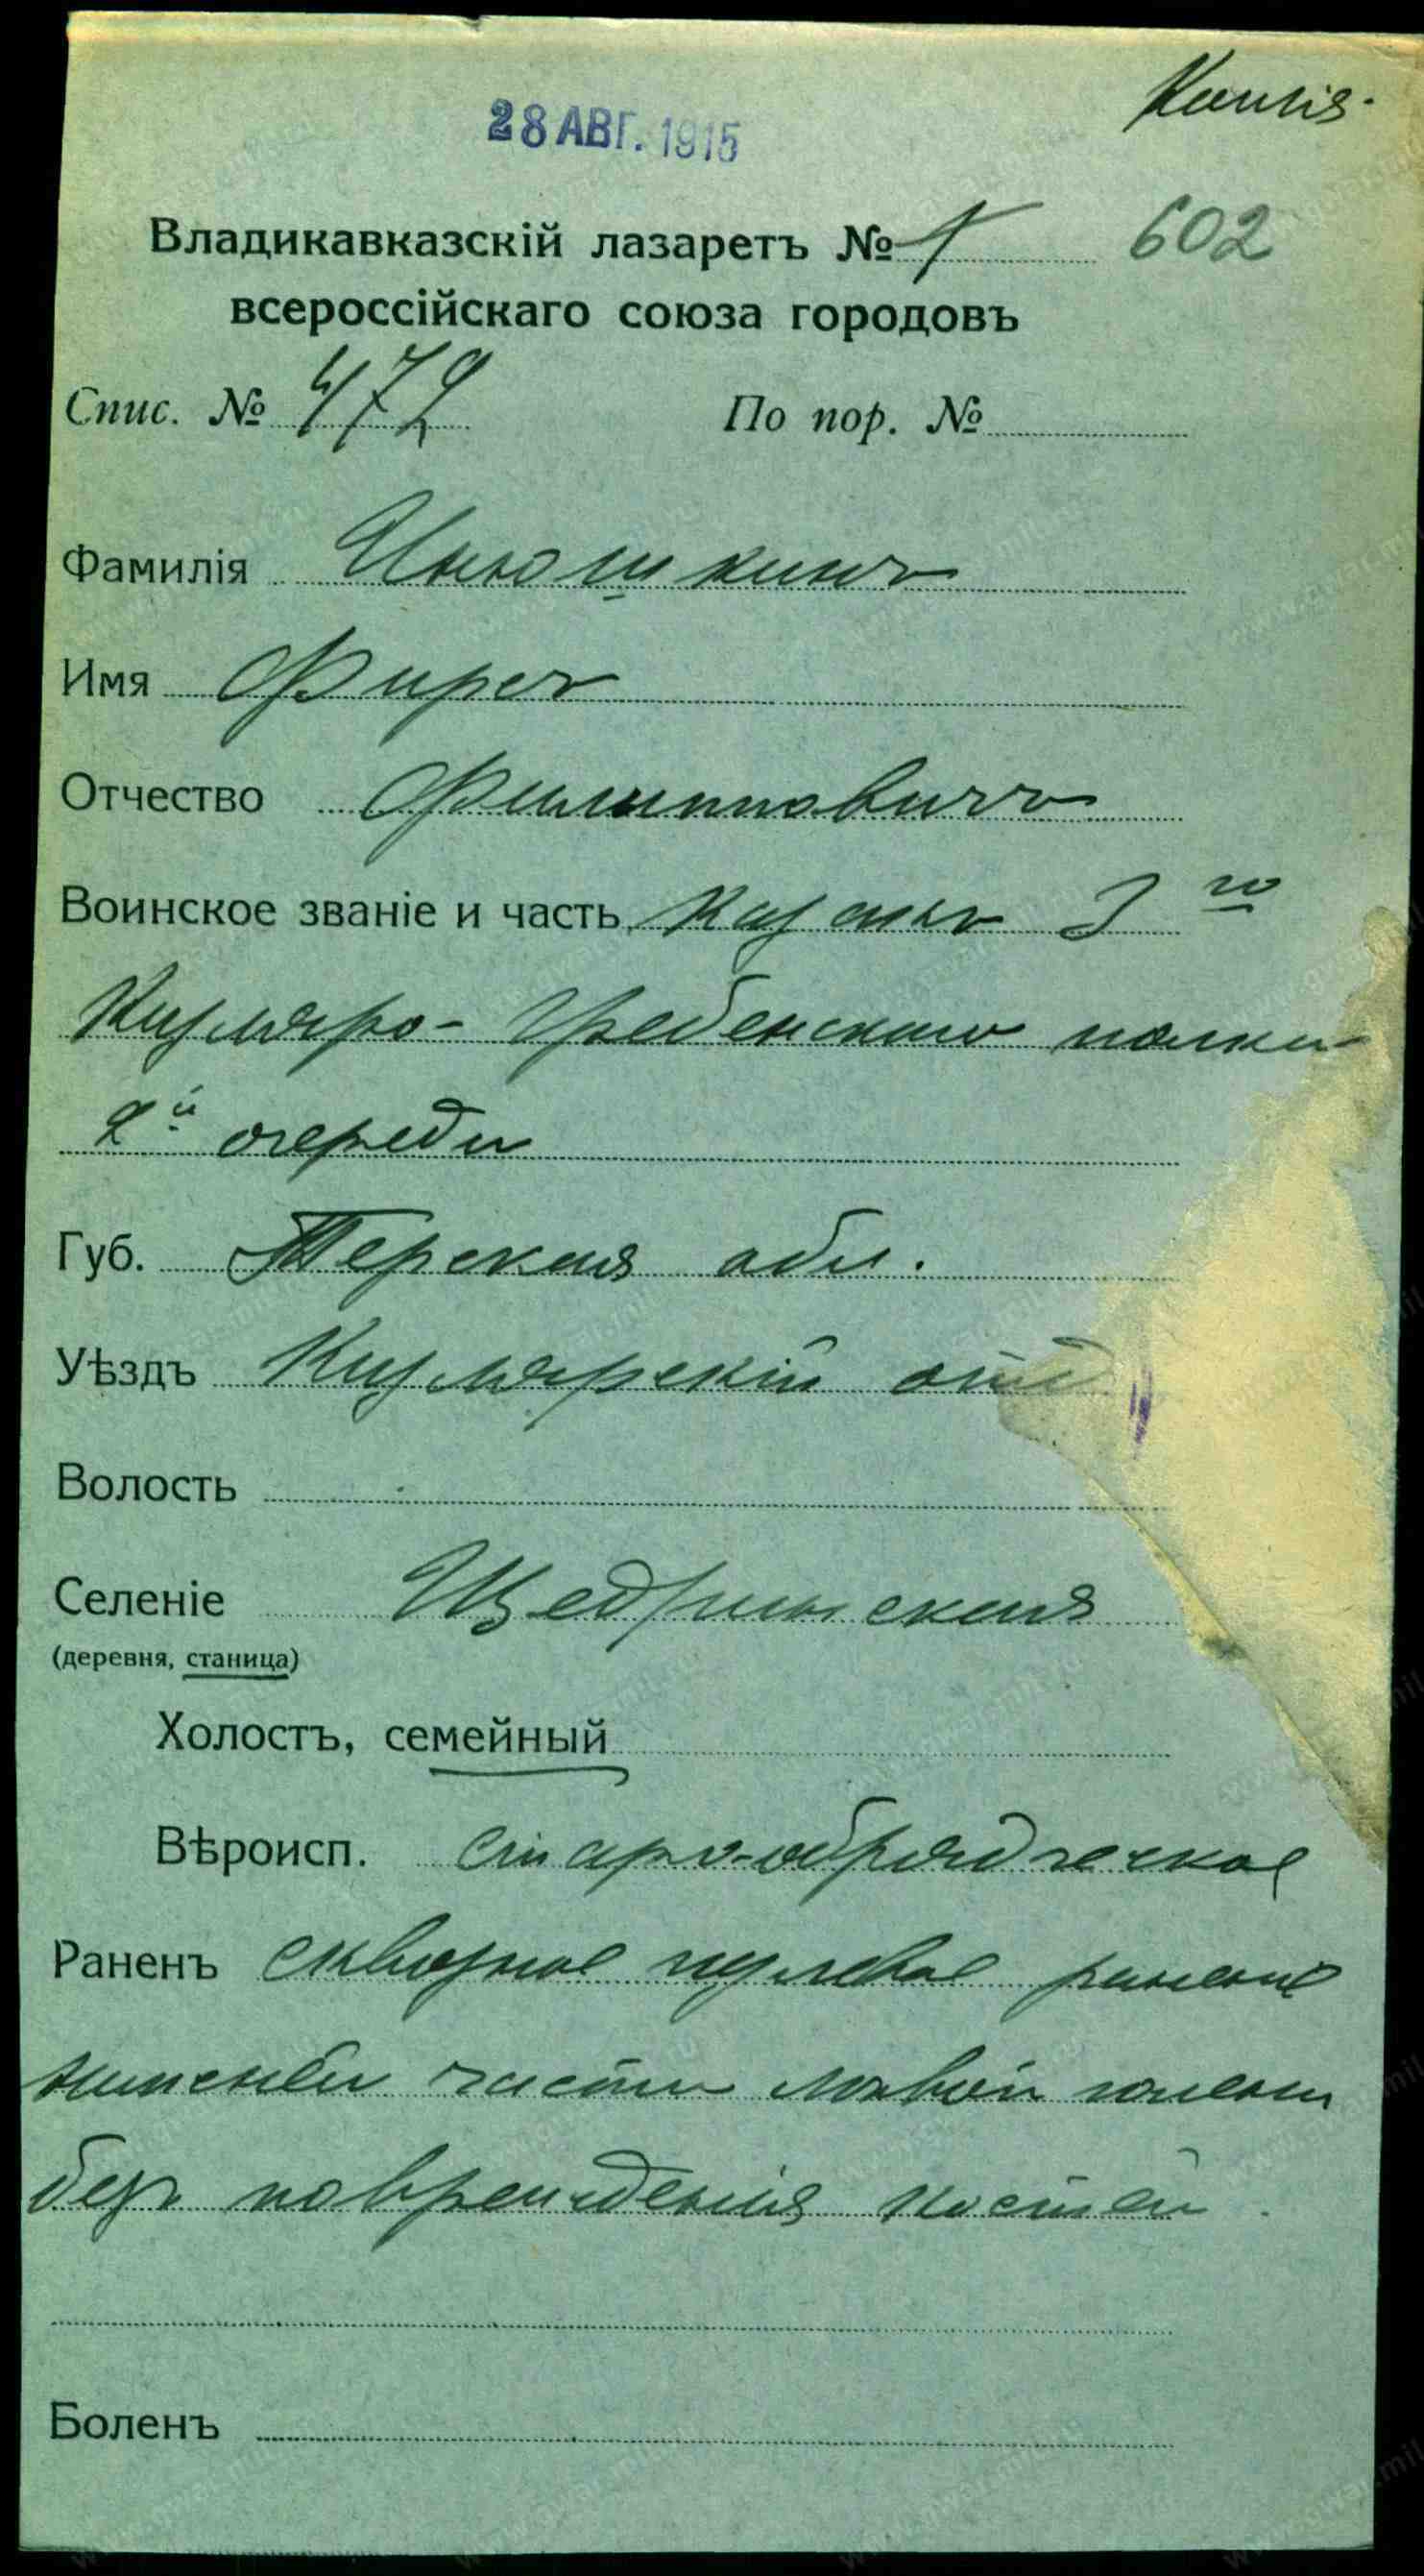 Копія.
28 АВГ. 1915
Владикавказскій лазаретъ № 1 602
всероссійскаго союза городовъ
Спис. № 472 По пор. №
Фамилія Инюшкинъ
Имя Фирсъ
Отчество Филипповичъ
Воинское званіе и часть казакъ 3го
Кизляро-Гребенского полка
2й очереди
Губ. Терская обл.
Уѣздъ Кизлярскій отд
Волость
Селеніе Щедринская
(деревня, станица)
Холостъ, семейный
Вѣроисп. старо-обрядческое
Раненъ сквозное пулевое раненіе
нижней части лѣвой голени
безъ поврежденія костей.
Боленъ